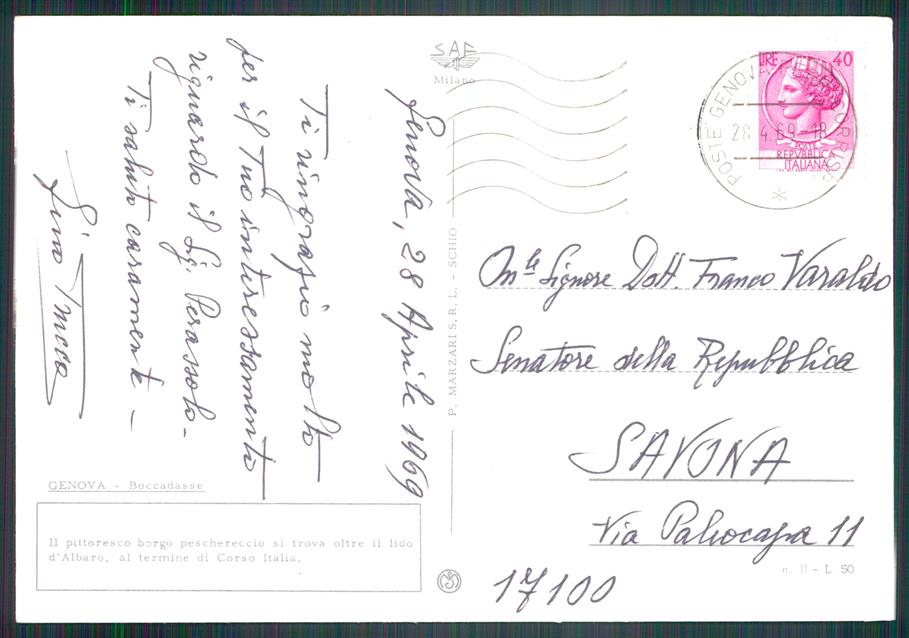 Genova, 28 Aprile 1969
Ti ringrazio molto
per il Tuo interessamento
riguardo il Sig. Perassolo-
Ti saluto caramente -
Gino
GENOVA - Boccadasse
Il pittoresco borgo peschereccio si trova oltre il lido
d'Albaro, al termine di Corso Italia.
SAF
Milano
P. MARZARI S. R. L. - SCHIO
LIRE 40
POSTE
REPVBBLICA
ITALIANA
POSTE GENOVA
28 4 69-18
On.le Signore Dott. Franco Varaldo
Senatore della Repubblica
SAVONA
Via Paleocapa 11
17100
n. 11 - L. 50